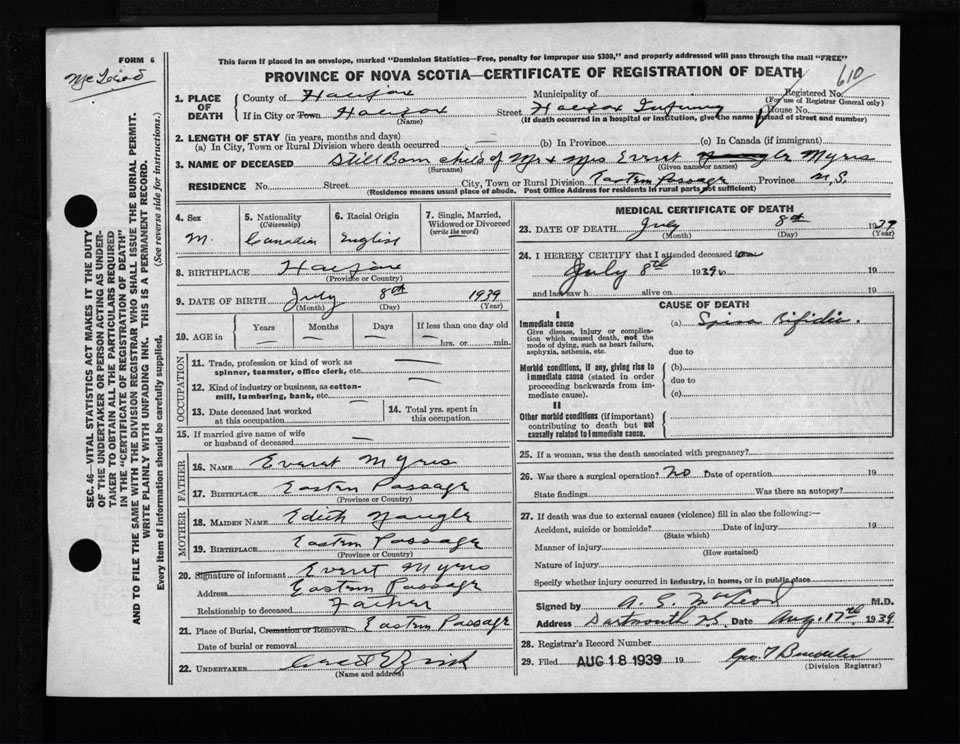 FORM 6
McLeod
610
This form if placed in an envelope, marked "Dominion Statistics—Free, penalty for improper use $300," and properly addressed will pass through the mail "FREE"
PROVINCE OF NOVA SCOTIA—CERTIFICATE OF REGISTRATION OF DEATH
1. PLACE OF DEATH
County of Halifax Municipality of Registered No.
(For use of Registrar General only)
If in City or Town Halifax Street Halifax Infirmary House No.
(Name) (If death occurred in a hospital or institution, give the name instead of street and number)
2. LENGTH OF STAY (in years, months and days)
(a) In City, Town or Rural Division where death occurred — (b) In Province (c) In Canada (if immigrant)
3. NAME OF DECEASED Still Born child of Mr & Mrs Everet Myris
(Surname) (Given name or names)
RESIDENCE No. Street City, Town or Rural Division Eastern Passage Province N.S.
(Residence means usual place of abode. Post Office Address for residents in rural parts not sufficient)
4. Sex
M.
5. Nationality
(Citizenship)
Canadian
6. Racial Origin
English
7. Single, Married, Widowed or Divorced
(write the word)
—
8. BIRTHPLACE Halifax
(Province or Country)
9. DATE OF BIRTH July 8th 1939
(Month) (Day) (Year)
10. AGE in
Years Months Days If less than one day old
— — — — hrs. or min.
OCCUPATION
11. Trade, profession or kind of work as
spinner, teamster, office clerk, etc. —
12. Kind of industry or business, as cotton-
mill, lumbering, bank, etc. —
13. Date deceased last worked
at this occupation
14. Total yrs. spent in
this occupation
15. If married give name of wife
or husband of deceased —
FATHER
16. NAME Everet Myris
17. BIRTHPLACE Eastern Passage
(Province or Country)
MOTHER
18. MAIDEN NAME Edith Naugle
19. BIRTHPLACE Eastern Passage
(Province or Country)
20. Signature of informant Everet Myris
Address Eastern Passage
Relationship to deceased Father
21. Place of Burial, Cremation or Removal Eastern Passage
Date of burial or removal
22. UNDERTAKER
(Name and address)
MEDICAL CERTIFICATE OF DEATH
23. DATE OF DEATH July 8th 1939
(Month) (Day) (Year)
24. I HEREBY CERTIFY that I attended deceased
July 8th 1939 to 19
and last saw h alive on 19
CAUSE OF DEATH
I
Immediate cause
Give disease, injury or complica-
tion which caused death, not the
mode of dying, such as heart failure,
asphyxia, asthenia, etc.
(a) Spina Bifida.
due to
Morbid conditions, if any, giving rise to
immediate cause (stated in order
proceeding backwards from im-
mediate cause).
(b)
due to
(c)
II
Other morbid conditions (if important)
contributing to death but not
causally related to immediate cause.
25. If a woman, was the death associated with pregnancy?
26. Was there a surgical operation? No Date of operation 19
State findings Was there an autopsy?
27. If death was due to external causes (violence) fill in also the following:—
Accident, suicide or homicide? Date of injury 19
(State which)
Manner of injury
(How sustained)
Nature of injury
Specify whether injury occurred in industry, in home, or in public place
Signed by A. E. McLeod M.D.
Address Dartmouth N.S. Date Aug. 17th 1939
28. Registrar's Record Number
29. Filed AUG 18 1939 19
(Division Registrar)
SEC. 46—VITAL STATISTICS ACT MAKES IT THE DUTY
OF THE UNDERTAKER OR PERSON ACTING AS UNDER-
TAKER TO OBTAIN ALL THE PARTICULARS REQUIRED
IN THE "CERTIFICATE OF REGISTRATION OF DEATH"
AND TO FILE THE SAME WITH THE DIVISION REGISTRAR WHO SHALL ISSUE THE BURIAL PERMIT.
WRITE PLAINLY WITH UNFADING INK. THIS IS A PERMANENT RECORD.
Every item of information should be carefully supplied. (See reverse side for instructions.)